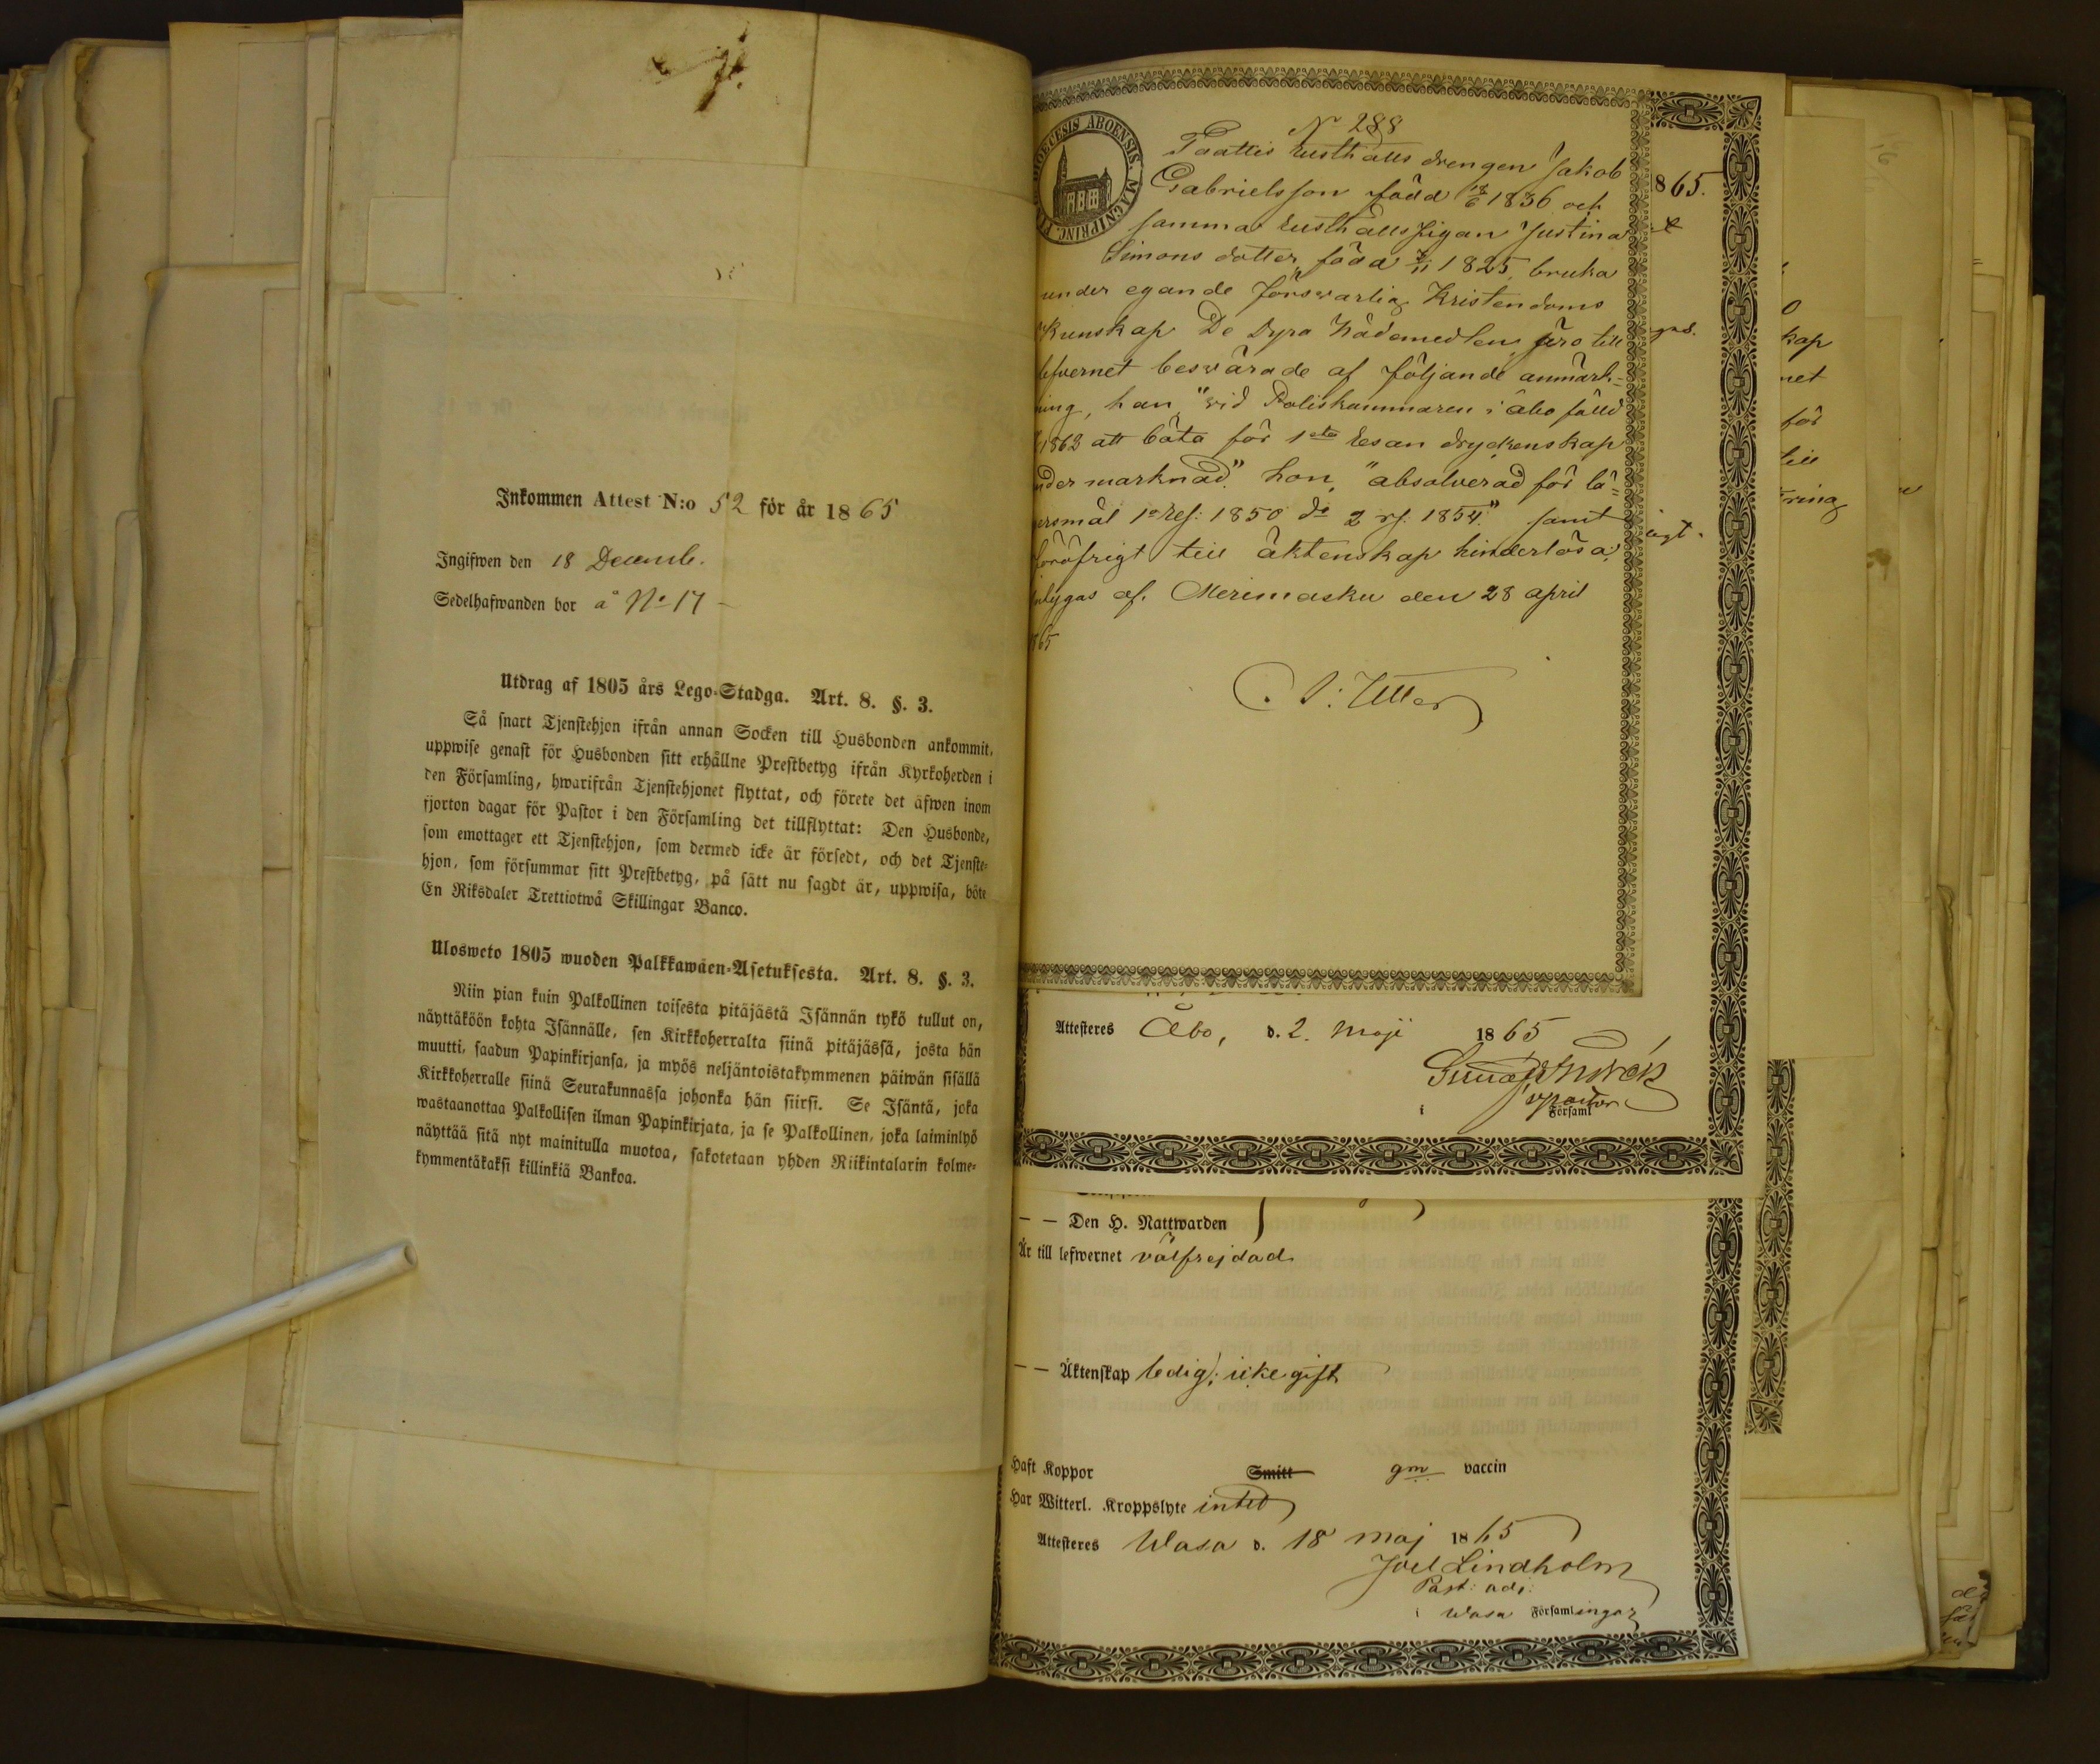 Inkommen Attest N:o 52 för år 1865
Ingifwen den 18 Decemb.
Sedelhafwanden bor å No 17 –
Utdrag af 1805 års Lego-Stadga. Art. 8. §. 3.
Så snart Tjenstehjon ifrån annan Socken till Husbonden ankommit,
uppwise genast för Husbonden sitt erhållne Prestbetyg ifrån Kyrkoherden i
den Församling, hwarifrån Tjenstehjonet flyttat, och förete det äfwen inom
fjorton dagar för Pastor i den Församling det tillflyttat: Den Husbonde,
som emottager ett Tjenstehjon, som dermed icke är försedt, och det Tjenste-
hjon, som försummar sitt Prestbetyg, på sätt nu sagdt är, uppwisa, böte
En Riksdaler Trettiotwå Skillingar Banco.
Ulosweto 1805 wuoden Palkkawäen-Asetuksesta. Art. 8. §. 3.
Niin pian kuin Palkollinen toisesta pitäjästä Isännän tykö tullut on,
näyttäköön kohta Isännälle, sen Kirkkoherralta siinä pitäjässä, josta hän
muutti, saadun Papinkirjansa, ja myös neljäntoistakymmenen päiwän sisällä
Kirkkoherralle siinä Seurakunnassa johonka hän siirsi. Se Isäntä, joka
wastaanottaa Palkollisen ilman Papinkirjata, ja se Palkollinen, joka laiminlyö
näyttää sitä nyt mainitulla muotoa, sakotetaan yhden Riikintalarin kolme-
kymmentäkaksi killinkiä Bankoa.
DIOECESIS ABOENSIS. MAGNI PRINC.
No 288
Paattis Rusthålls drengen Jakob
Gabrielsson född 1836 och
samma Rusthålls pigan Justina
Simons dotter, född 1825, bruka
under egande försvarlig Kristendoms
Kunskap De Dyra Nådemedlen, äro till
lefvernet besvärade af följande anmärk-
ning, han "vid Poliskammaren i Åbo fälld
1863 att böta för 1sta resan dryckenskap
under marknad." hon, "absolverad för lä-
gersmål 1a res: 1850 do 2 rs. 1854." samt
föröfrigt till äktenskap hinderlösa,
betygas af. Merimasku den 28 april
1865
1865.
Attesteres Åbo, d. 2. Maji 1865
i Församl
– – Den H. Nattwarden
Är till lefwernet välfrejdad
– – Äktenskap ledig; icke gift
Haft Koppor Smitt gm vaccin
Har Witterl. Kroppslyte intet
Attesteres Wasa d. 18 maj 1865
Joel Lindholm
Past: adj:
i Wasa Församlingar
kap
net
för
till